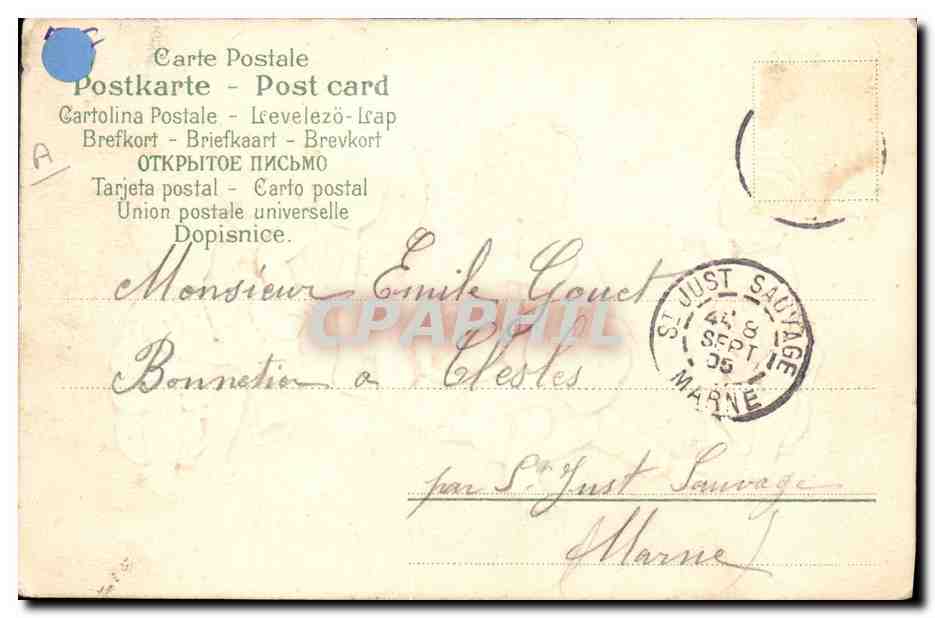 Carte Postale
Postkarte - Post card
Cartolina Postale - Levelezö-Lap
Brefkort - Briefkaart - Brevkort
ОТКРЫТОЕ ПИСЬМО
Tarjeta postal - Carto postal
Union postale universelle
Dopisnice.
A
Monsieur Emile Gouet
Bonnetier a Clesles
par St Just Sauvage
(Marne)
ST JUST SAUVAGE
8
SEPT
05
MARNE
CPAPHIL